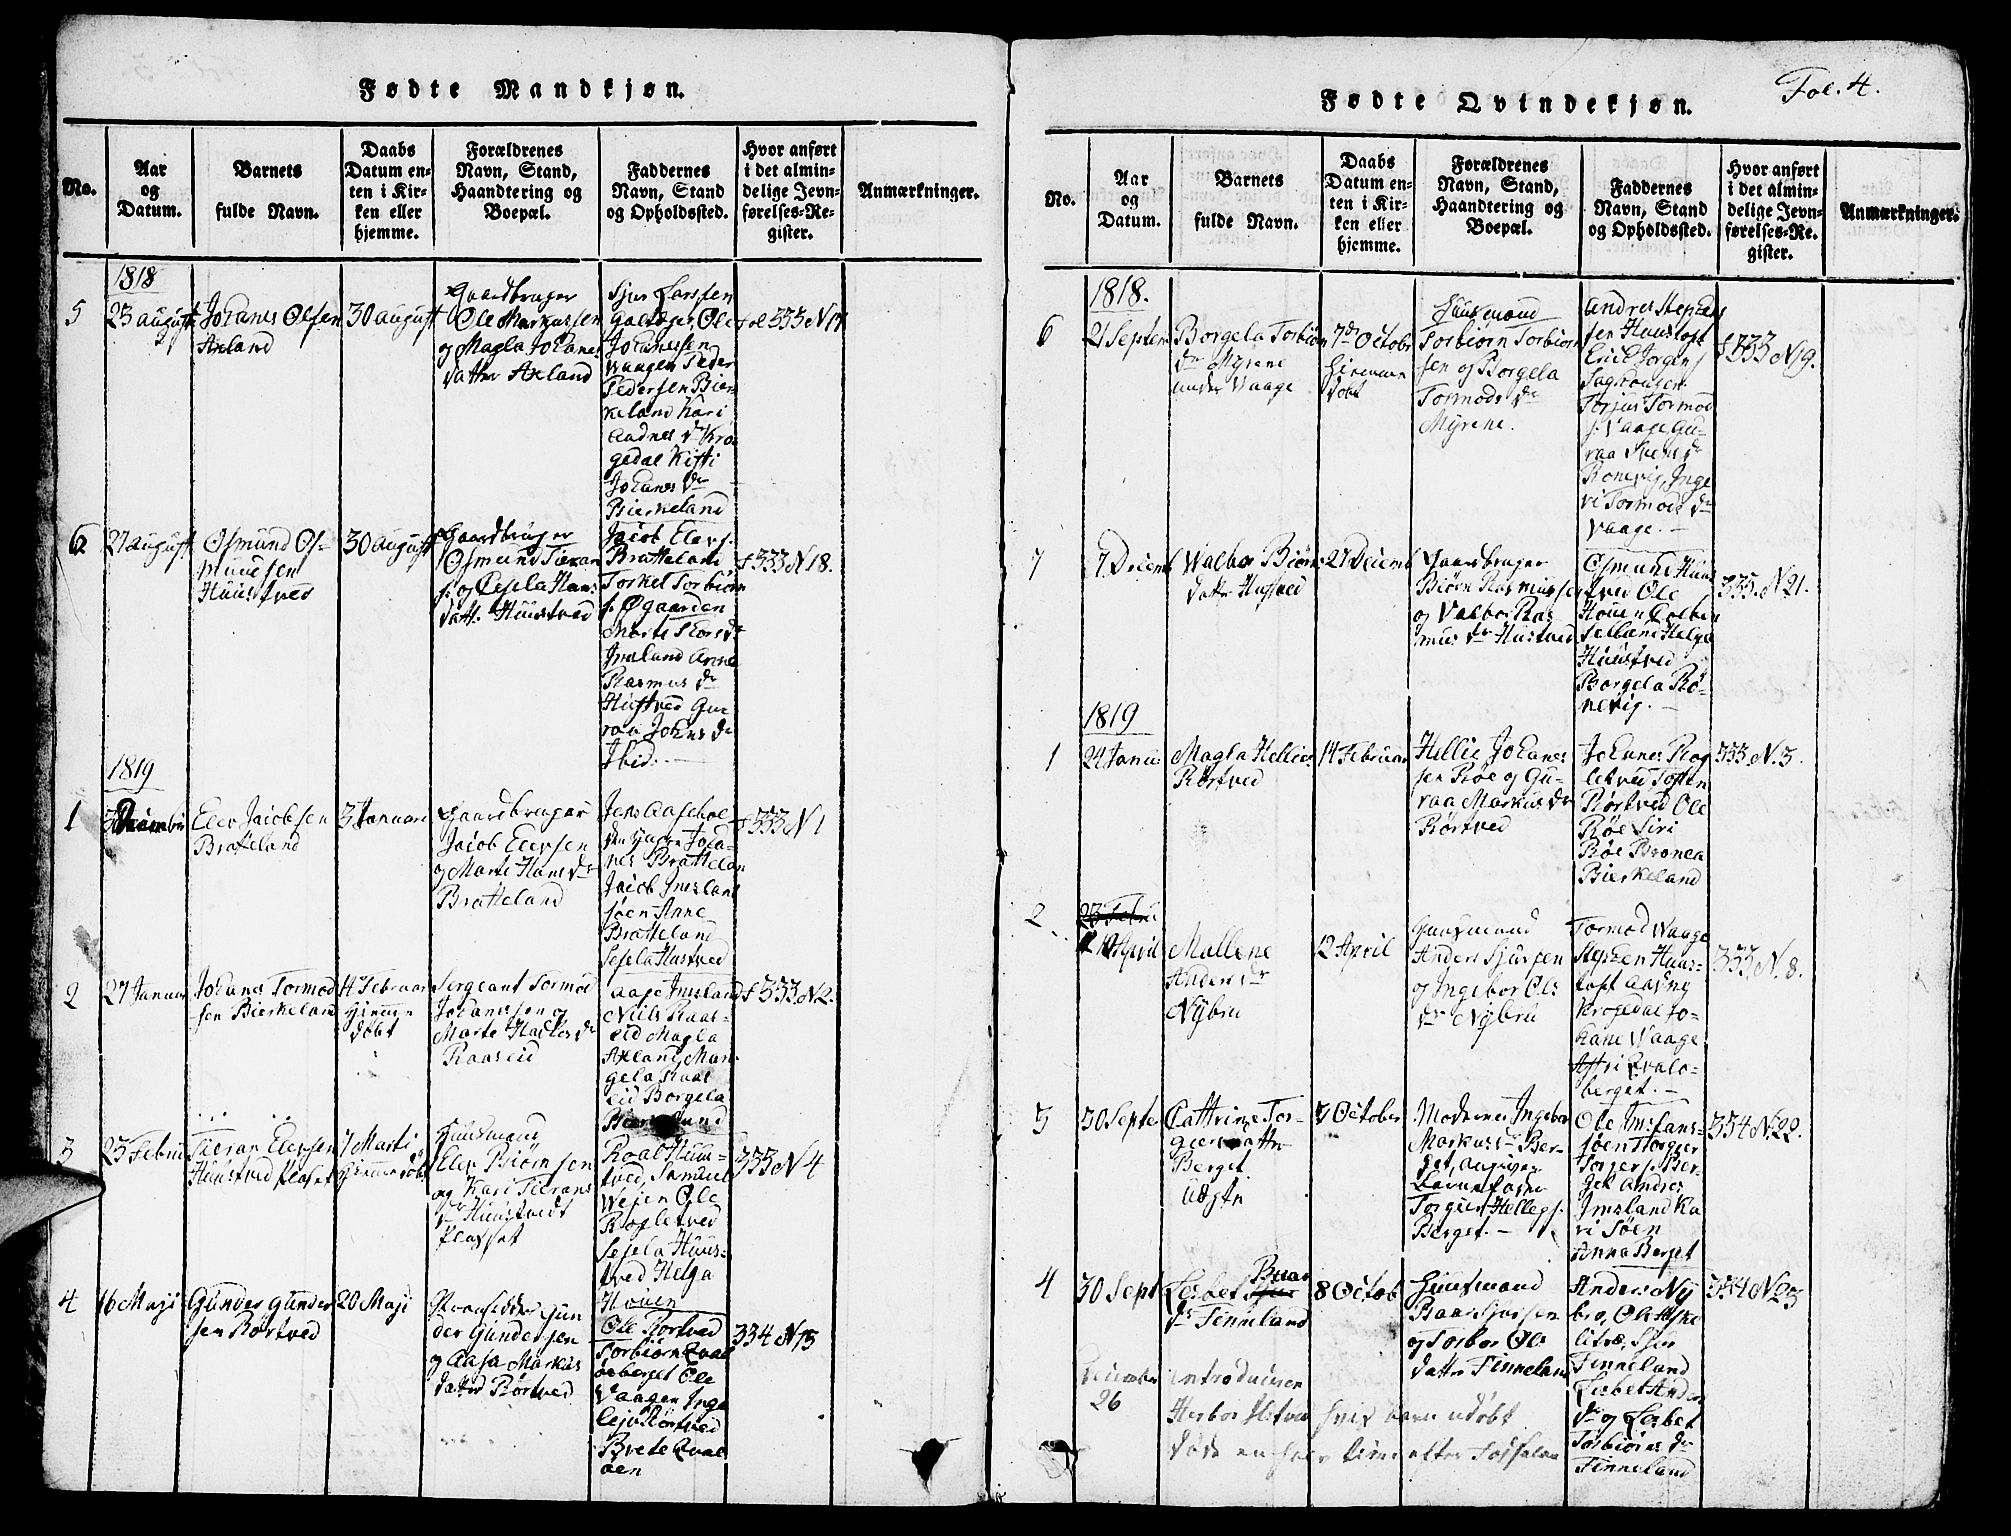 Fødte Mandkjøn.
No.
Aar
og
Datum.
Barnets
fulde Navn.
Daabs
Datum en-
ten i Kir-
ken eller
hjemme.
Forældrenes
Navn, Stand,
Haandtering og
Boepæl.
Faddernes
Navn, Stand
og Opholdssted.
Hvor anført
i det almin-
delige Jevn-
førelses-Re-
gister.
Anmærkninger.
1818
5
23 august
Johanes Olsen
Axland
30 august
Gaardbruger
Ole Markussen
og Magla Johanes
datter Axland
Sjur Larssen
Ole
Johanessen
Vaagen Peder
Pedersen Bier
keland Kari
Aadnes dr Kro
gedal Kisti
Johanes dr
Bierkeland
fol 333 N 17
6
27 august
Osmund Os-
mundsen
Huustved
30 august
Gaardbruger
Osmund Tieran
s. og Sesela Hans
datt. Huustved
Jacob Elevs.
Bratteland
Torkel Torbiørn
s. Øgaarden
Marte
Imsland Anne
Rasmus dr
Hustved Gu-
roa Johans dr
Ibid.
f 333 N 18.
1819
1
Elev Jacobsen
Bratteland
3 Januari
Gaardbruger
Jacob Elevsen
og Marte Hans dr
Bratteland
Jens Aaseboe
Joha-
nes Bratteland
Jacob Imsland
søen Anne
Bratteland
Sesela Hustved
f 333 N 1
2
27 Januar
Johanes Tormod
sen Bierkeland
14 Februar
hjemme
døbt
Sergeant Tormod
Johanssen og
Marte dr
Raaseid
Aase Imsland
Niels Raas-
eid Magla
Axland Mar-
gela Raas
eid Borgela
Bierkeland
f 333 N 2.
3
23 Febru
Tieran Elevsen
Huustved Plasset
7 Marti
hjemmedøbt
Huusmand
Elev Biørnsen
og Kari Tierans
dr Huustvedt
Plasset
Roal Huus-
tved, Samuel
Vejen Ole
Rogletved
Sesela Huus-
tved Helga
Houen
333 N 4
4
16 Maji
Gunder Gunder
sen Rørtved
20 Maji
Gun
der Gundersen
og Aasa Markus
datter Rørtved
Ole Rørtved
Torbiørn Qval
oeberget Ole
Vaagen Inge
Rørtved
Brete Qval
oen
334 N 13
Fødte Qvindekjøn.
Fol. 4.
No.
Aar
og
Datum.
Barnets
fulde Navn.
Daabs
Datum en-
ten i Kir-
ken eller
hjemme.
Forældrenes
Navn, Stand,
Haandtering og
Boepæl.
Faddernes
Navn, Stand
og Opholdssted.
Hvor anført
i det almin-
delige Jevn-
førelses-Re-
gister.
Anmærkninger.
1818.
6
21 Septem
Borgela Torbiørn
dr Myrene
under Vaage
7de Octobr
hiemme
døbt
Huusmand
Torbiørn Torbiørn
sen og Borgela
Tormods dr
Myrene.
Andres Stephen
sen Huustoft
Erich Jørgens
Torjus Tormod
s. Vaage Gu-
roa Svens dr
Ronevig, Inge
ri Tormods dr
Vaage.
f 333 N 19.
7
7 Decemb
Walbor Biørns
datter Hustved
27 Decemb
Gaardbruger
Biørn Rasmussen
og Valbor Ras
mus dr Hustved
Osmund Huus
tved Ole
Houen Colben
Helga
Huustved
Borgela Rø-
nevig.
335. N 21.
1819
1
24 Janu
Magla Hellies
Rørtved
14 Februar
Hellie Johanes
sen Røe og Gu-
roa Markus dr
Rørtved
Johanes Rog
letved Tosten
Rørtved Ole
Røe Siri
Røe Bronea
Bierkeland
333 N. 3.
2
23 Febru
April
Mallene
Anders dr
Nybru
12 April
Huusmand
Anders Sjursen
og Ingebor Ols
dr Nybru
Tormod Waage
Stephen Huus-
toft Aasny
Krogedal Jo-
hane Waage
Astri Qvalo-
berget.
333 N. 8.
3
30 Septe
Cattrine Tor-
giers datter
Berget
Uægte
3 October
Moderen Ingebor
Markus dr Ber-
get, angiven
Barnefader
Torgier Hellegs.
Berget.
Ole Imslans-
søen Torgier
Torgers. Ber-
get Andres
Imsland Ka
ri Søen
Anna Berget
334 N. 22.
4
30 Sept
Lisbet Sjur Baar
dr Finneland
8 Octob
Huusmand
Baar Sjursen
og Torbor Ols
datter Finneland
Anders Ny
bro, Ole Aske
litræ, Sjur
Finneland
Lisbet Anders
dr og Lisbet
Torbiørns dr
Finneland
334 N 23
December
26
introduceren
Herbor Hstved hvis barn udøbt
døde en halv time efter Fødselen